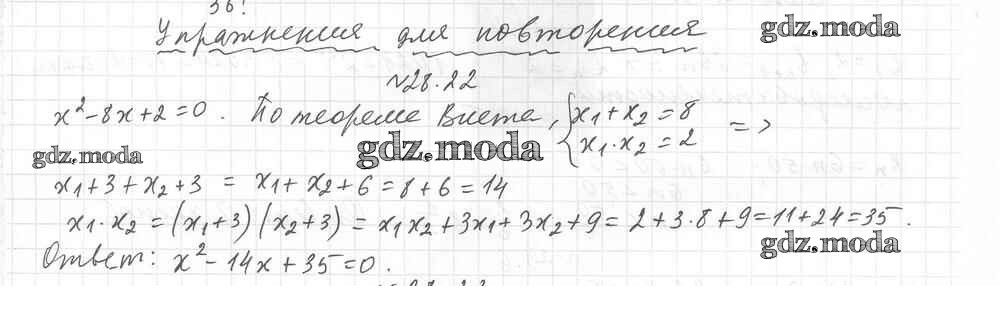 36!
Упражнения для повторения
gdz.moda
№28.22
x²-8x+2=0. По теореме Виета, {x₁+x₂=8 =>
x₁·x₂=2
gdz.moda
gdz.moda
x₁+3+x₂+3 = x₁+x₂+6=8+6=14
x₁·x₂=(x₁+3)(x₂+3)=x₁x₂+3x₁+3x₂+9=2+3·8+9=11+24=35.
gdz.moda
Ответ: x²-14x+35=0.